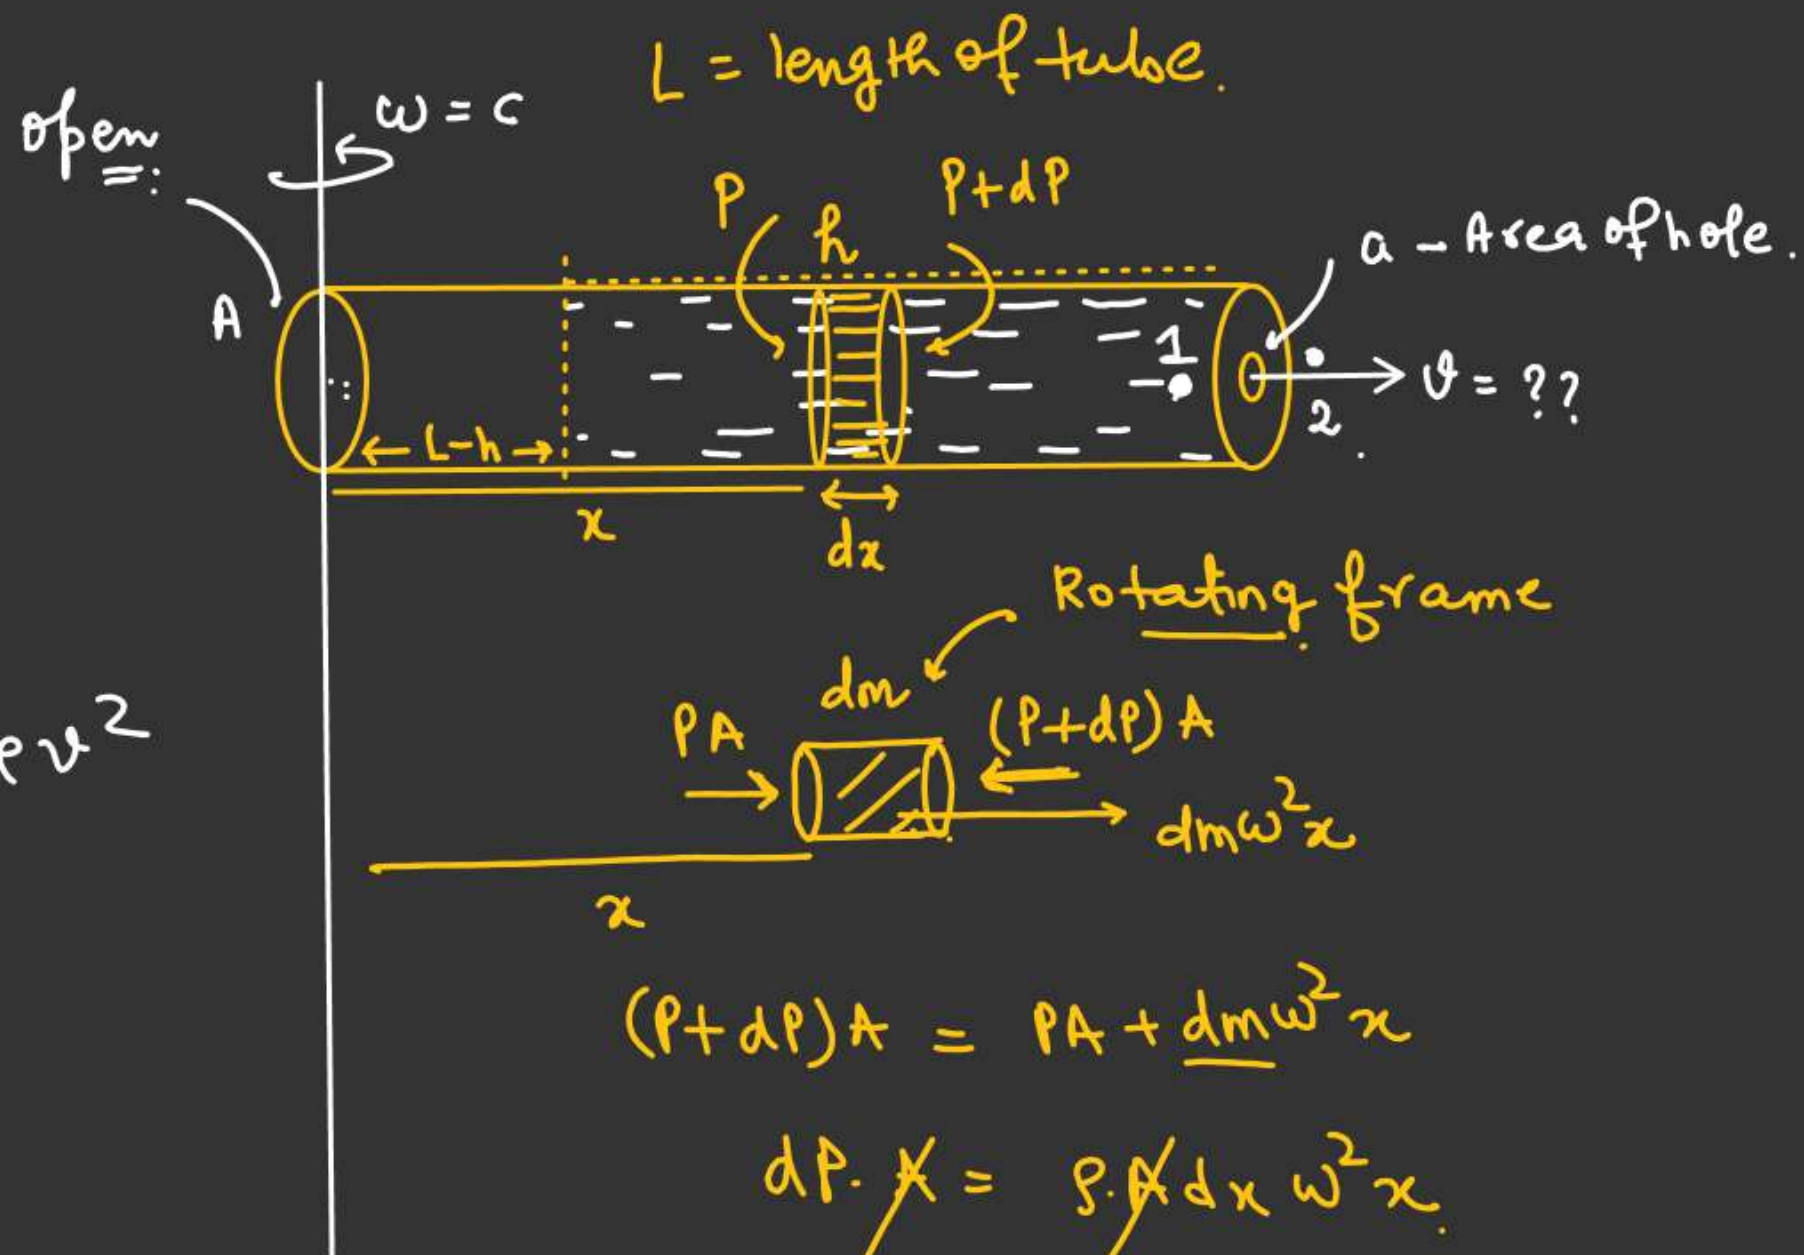 L = length of tube.
open
ω = c
P
h
P+dP
a - Area of hole.
A
1
2
v = ??
← L-h →
x
dx
Rotating frame
dm
PA
(P+dP) A
dmω²x
ρv²
x
(P+dP)A = PA + dmω²x
dP. A = ρ.A dx ω²x.